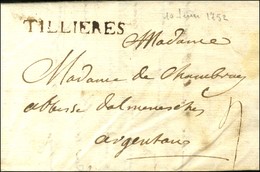 TILLIERES
Madame
Madame de Chambray
abbesse dalmenesches
argentan